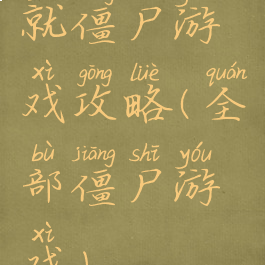 就僵尸游
xì gōng lüè quán
戏攻略(全
bù jiāng shī yóu
部僵尸游
xì
戏)